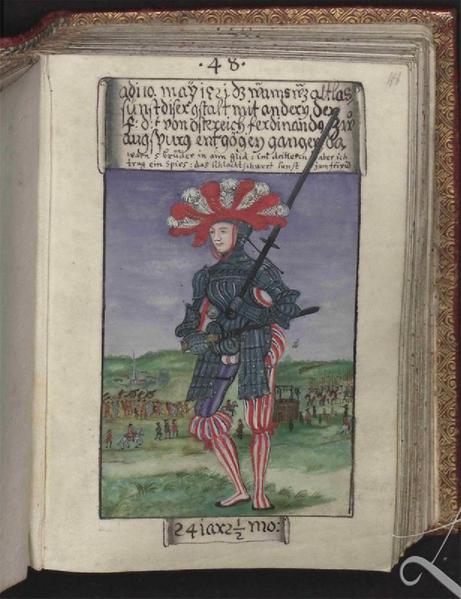 · 48 ·
adi 10. maÿ 1521 dz wams wz altlas
sunst diser gstalt mit andern der
f: d: von östereich ferdinandọ zů
augspurg entgögen gangen da
warn 5 brüder in ain glid: int dritteschi aber ich
trug ein Spies: das schlachtschwert sunst
24 iar 2 1/2 mo: